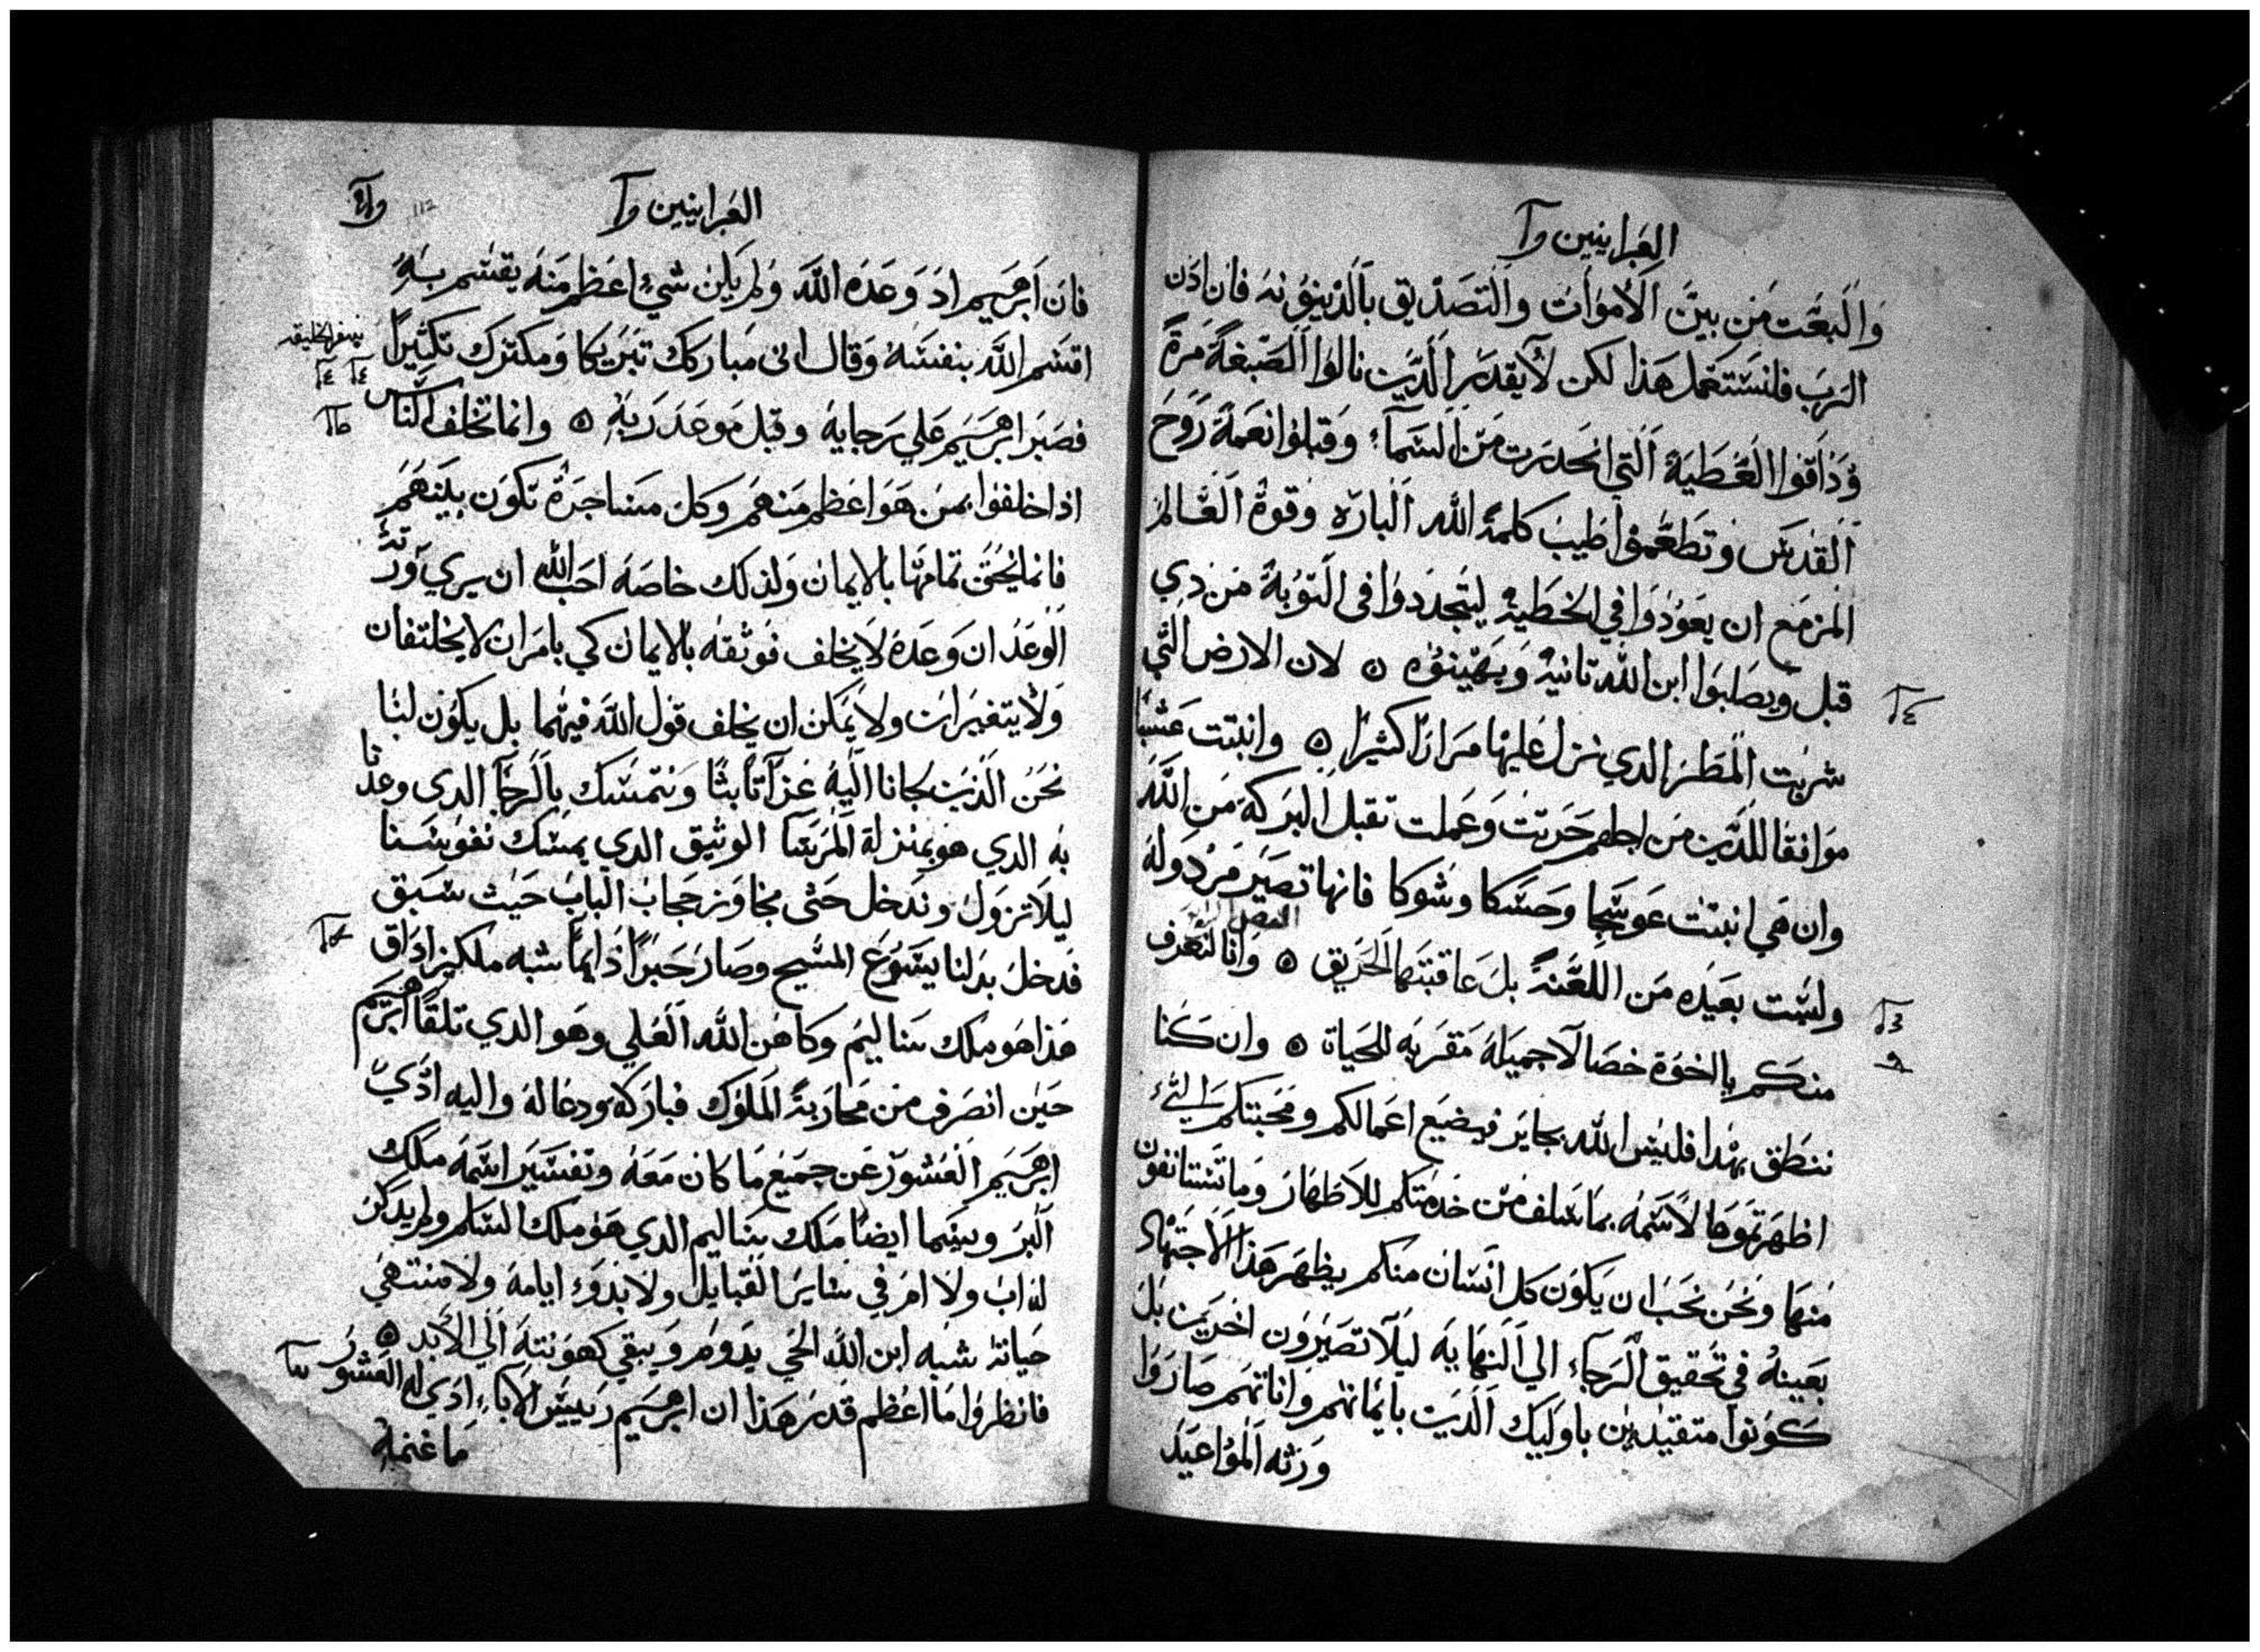 العبرانيين و
والبعث من بين الاموات والتصديق بالدينونه فان اذن
الرب فلنستعمل هذا لكن لا يقدر الدين نالوا الصبغة مرة
وذاقوا العطية التي انحدرت من السماء وقبلوا نعمة روح
القدس وتطعموا طيب كلمة الله الباره وقوة العالم
المزمع ان يعودوا في الخطية ليتجددوا في التوبة من ذي
قبل ويصلبوا ابن الله تانية ويهينوه ه لان الارض التي
شربت المطر الدي نزل عليها مرارا كثيرا ه وانبتت عشبا
موافقا للدين من اجلهم حرتت وعملت تقبل البركه من الله
وان هي انبتت عوسجا وحسكا وشوكا فانها تصير مردوله
وليست بعيده من اللعنة بل عاقبتها الحريق ه وانا لنعرف
منكم يا اخوة خصالا جميلة مقربه للحياة ه وان كنا
ننطق بهدا فليس الله بجاير فيضيع اعمالكم ومحبتكم التي
اظهرتموها لاسمه بما سلف من خدمتكم للاطهار وما تستانفون
منها ونحن نحب ان يكون كل انسان منكم يظهر هذا الاجتهاد
بعينه في تحقيق الرجاء الي النهايه ليلا تصيرون اخرين بل
كونوا متقيدين باوليك الدين بايمانهم واناتهم صاروا
ورثه المواعيد
العبرانيين و
فان ابرهيم اد وعده الله ولم يكن شيء اعظم منه يقسم به
اقسم الله بنفسه وقال انى مباركك تبريكا ومكترك تكثيرا
سفر الخليقه
فصبر ابرهيم علي رجايه وقبل موعد ربه ه وانما تخلف الناس
اذا خلفوا بمن هو اعظم منهم وكل مشاجرة تكون بينهم
فانما يحق تمامها بالايمان ولذلك خاصة احب الله ان يري ورثة
الوعد ان وعده لا يخلف فوثقه بالايمان كي بامران لا يختلفان
ولا يتغيران ولا يمكن ان يخلف قول الله فيهما بل يكون لنا
نحن الذين لجانا اليه عزا تابثا ونتمسك بالرجا الدى وعدنا
به الدي هو بمنزلة المرسا الوثيق الدي يمسك نفوسنا
ليلا تزول وندخل حتى نجاوز حجاب الباب حيث سبق
فدخل بدلنا يسوع المسيح وصار حبرا دايما شبه ملكيزاداق
هذا هو ملك ساليم وكاهن الله العلي وهو الدي تلقا ابرهيم
حين انصرف من محاربة الملوك فباركه ودعا له واليه ادي
ابرهيم العشور عن جميع ما كان معه وتفسير اسمه ملك
البر ويسما ايضا ملك ساليم الدي هو ملك السلم ولم يدكر
له اب ولا ام في ساير القبايل ولا بدو ايامه ولا منتهي
حياته شبه ابن الله الحي يدوم ويبقي كهونته الي الابد ه
فانظروا ما اعظم قدر هذا ان ابرهيم رييس الاباء ادي له العشور
ما غنمه